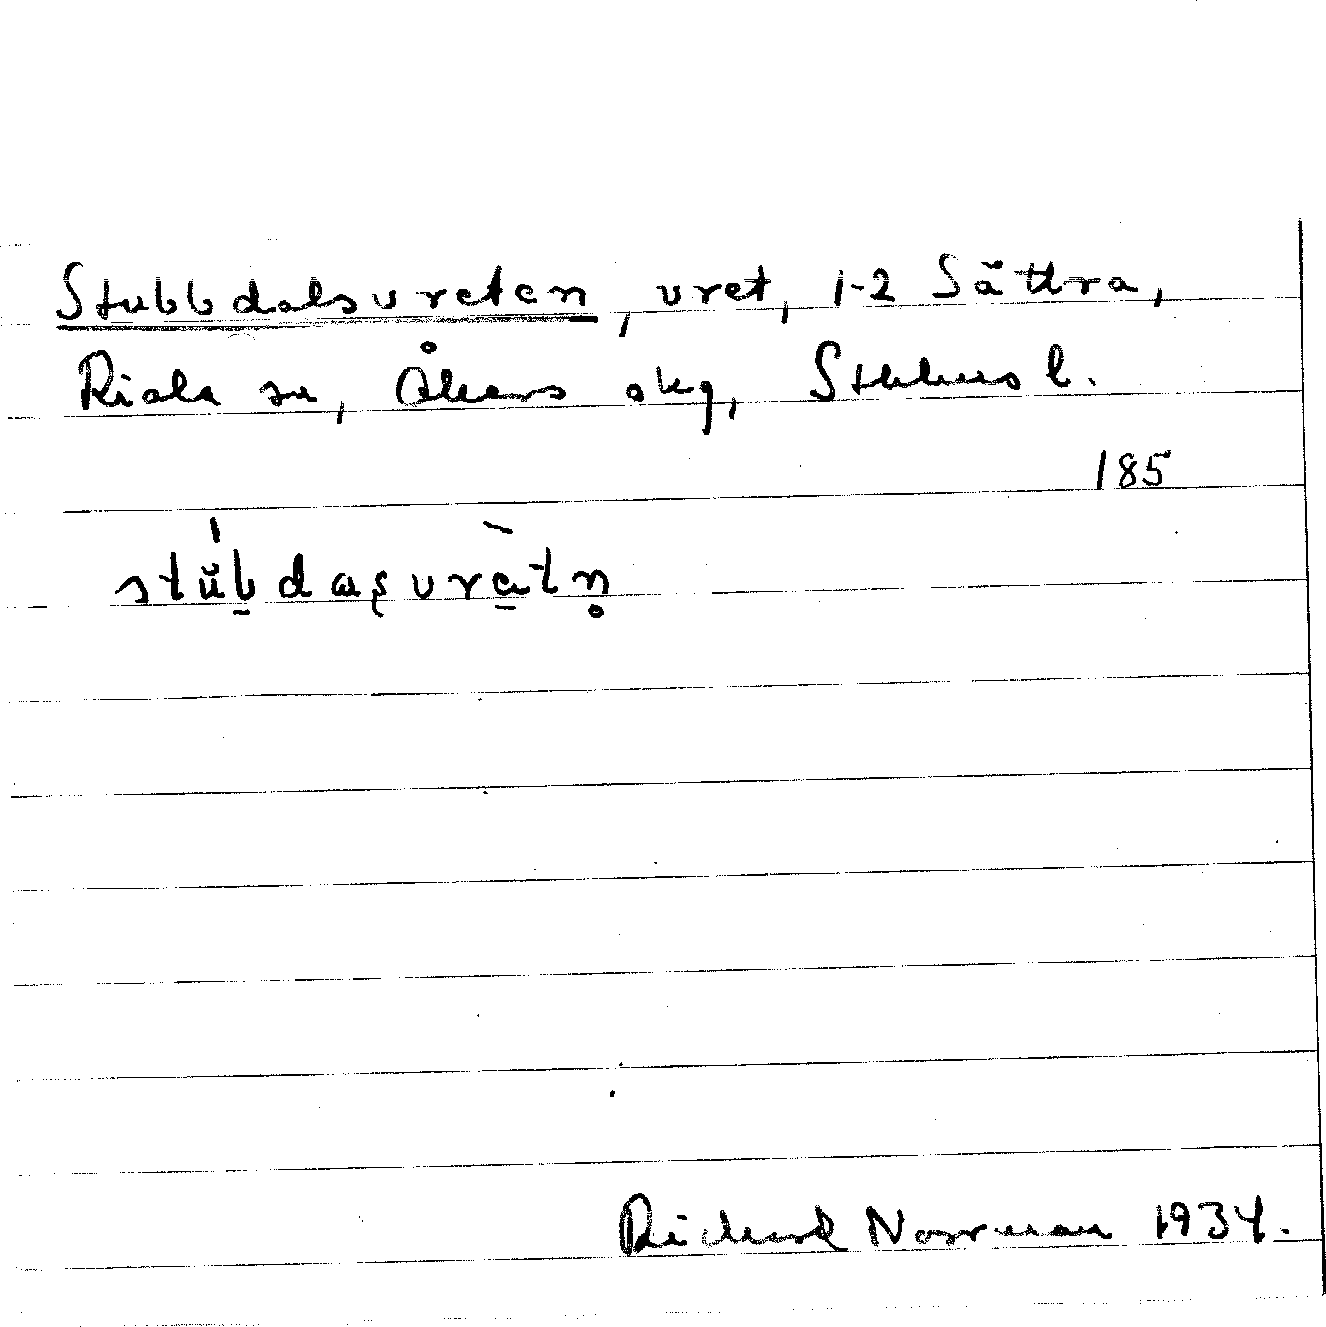 Stubbdalsvreten, vret, 1-2 Sättra,
Riala sn, Åkers skg, Sthlms l.
185
stu̇̆ḇdasvrètn̥
Richard Norrman 1934.